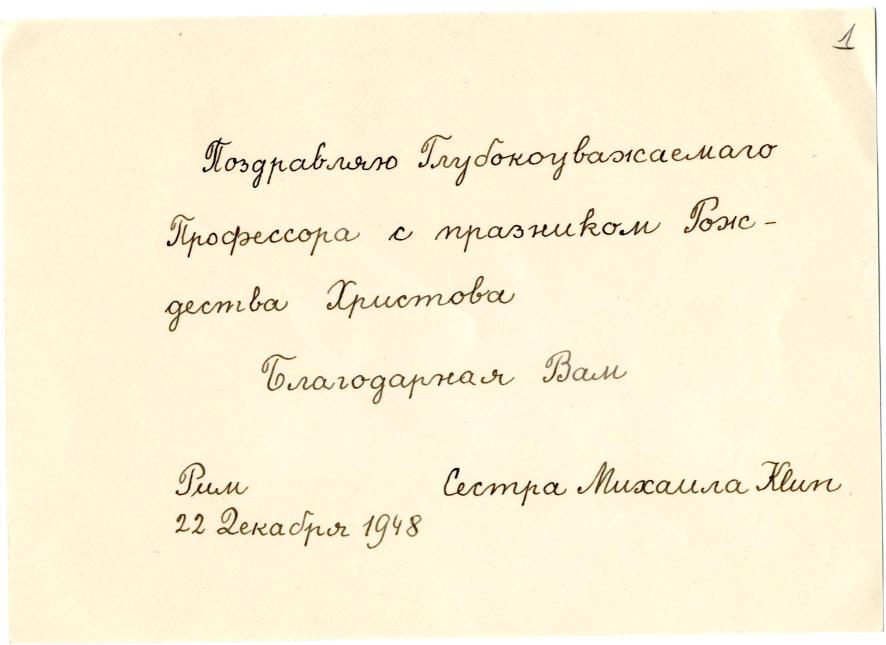 1
Поздравляю Глубокоуважаемаго
Профессора с празником Рож-
дества Христова
Благодарная Вам
Рим
Сестра Михаила Клип
22 Декабря 1948